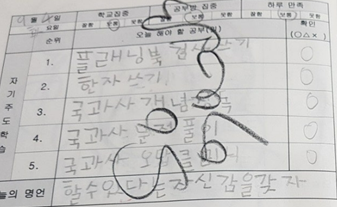 9월 4일 학교집중 공부방 집중 하루 만족
요일 보통 보통 보통
순위 오늘 해야 할 공부(일) 확인
(○△×)
자기주도학습
1. 플래닝북 검사 쓰기
2. 한자 쓰기
3. 국과사 개념
4. 국과사 문제 풀이
5. 국과사 오답
늘의 명언 할 수 있다는 자신감을 갖자